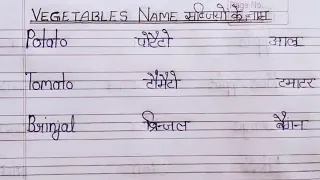 VEGETABLES NAME सब्जियों के नाम
Potato पोटैटो आलू
Tomato टोमैटो टमाटर
Brinjal ब्रिन्जल बैंगन